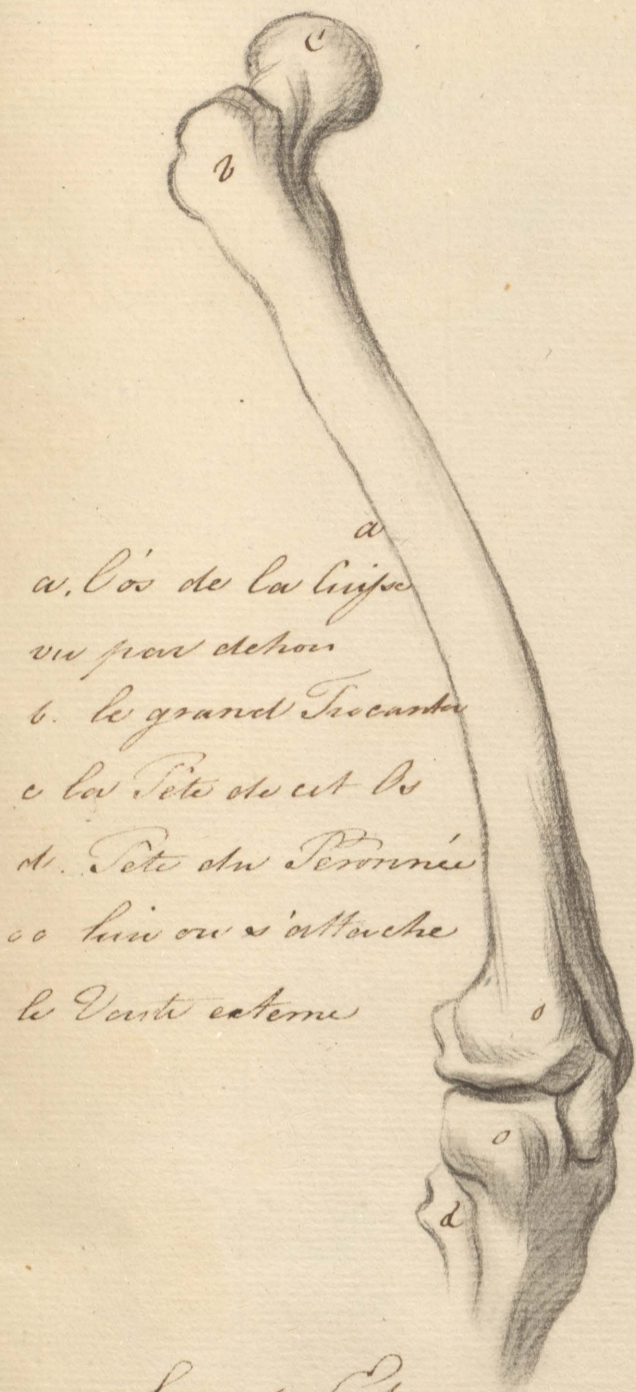 c
b
a
a. l'ós de la Cuisse
vu par dehors
b. le grand Trocanter
c la Tête de cet Os
d. Tête du Péronnée
oo lieu ou s'attache
le Vaste externe
o
o
d